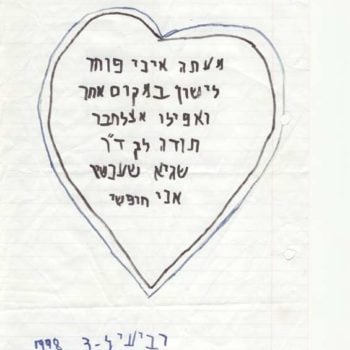 מעתה איני פוחד
לישון במקום אחר
ואפילו אצל חבר
תודה לך ד"ר
שגיא שעכשו
אני חופשי
רביעי ל-ד 1998